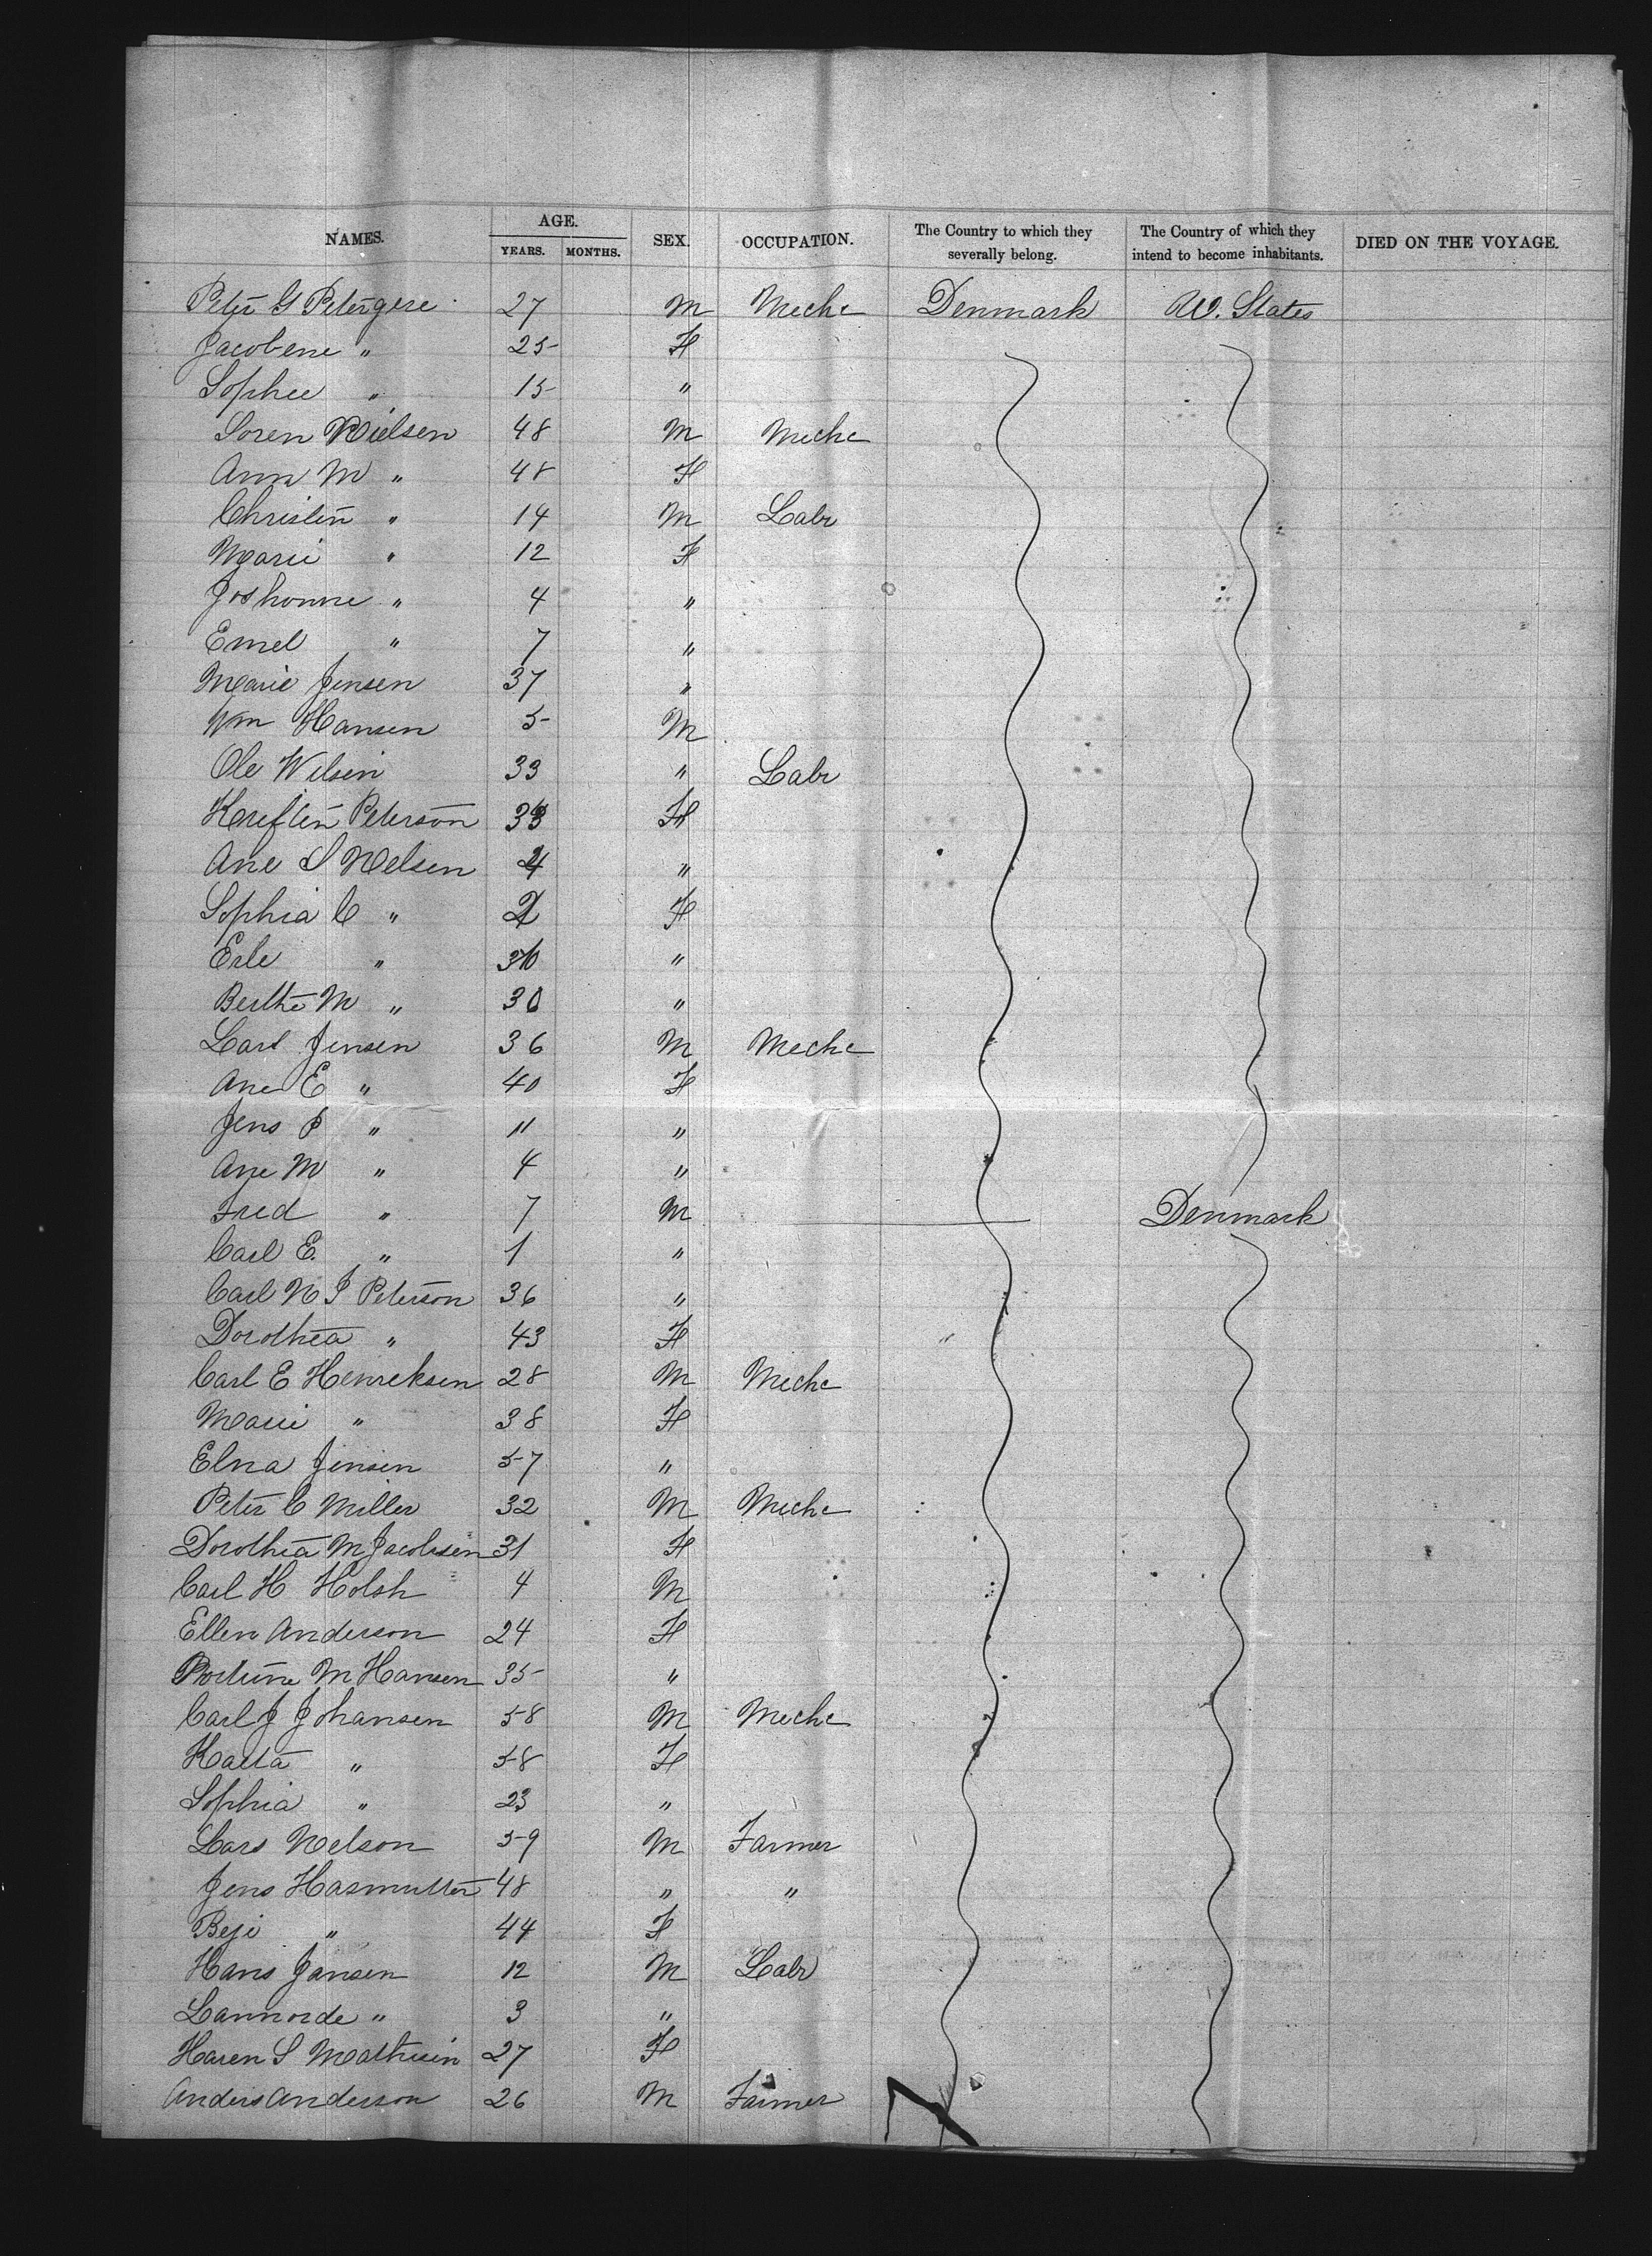 NAMES. AGE. SEX. OCCUPATION. The Country to which they severally belong. The Country of which they intend to become inhabitants. DIED ON THE VOYAGE.
YEARS. MONTHS.
Peter G 27 M Mechc Denmark U. States
Jacobene " 25 F
Sophee " 15 "
Soren Nielsen 48 M Mechc
Ann M " 48 F
Christen " 14 M Labr
Marie " 12 F
Joshonne " 4 "
Emel " 7 "
Marie Jensen 37 "
Wm Hansen 5 M
Ole Wilsen 33 " Labr
Peterson F
Ane S Nelsen "
Sophia C " F
Erle " "
Berthe M " 30 "
Lars Jensen 36 M Mechc
Ane E " 40 F
Jens P " 11 "
Ane M " 4 "
Fred " 7 M Denmark
Carl E. " 1 "
Carl N J Peterson 36 "
Dorothea " 43 F
Carl E Henreksen 28 M Mechc
Marie " 38 F
Elna Jensen 57 "
Peter C Miller 32 M Mechc
Dorothea M Jacobsen 31 F
Carl H Holsh 4 M
Ellen Anderson 24 F
M Hansen 35 "
Carl J Johansen 58 M Mechc
Katta " 58 F
Sophia " 23 "
Lars Nelson 59 M Farmer
Jens 48 " "
Beji " 44 F
Hans Jansen 12 M Labr
Lannorde " 3 "
Haren S Mathisen 27 F
Anders Anderson 26 M Farmer